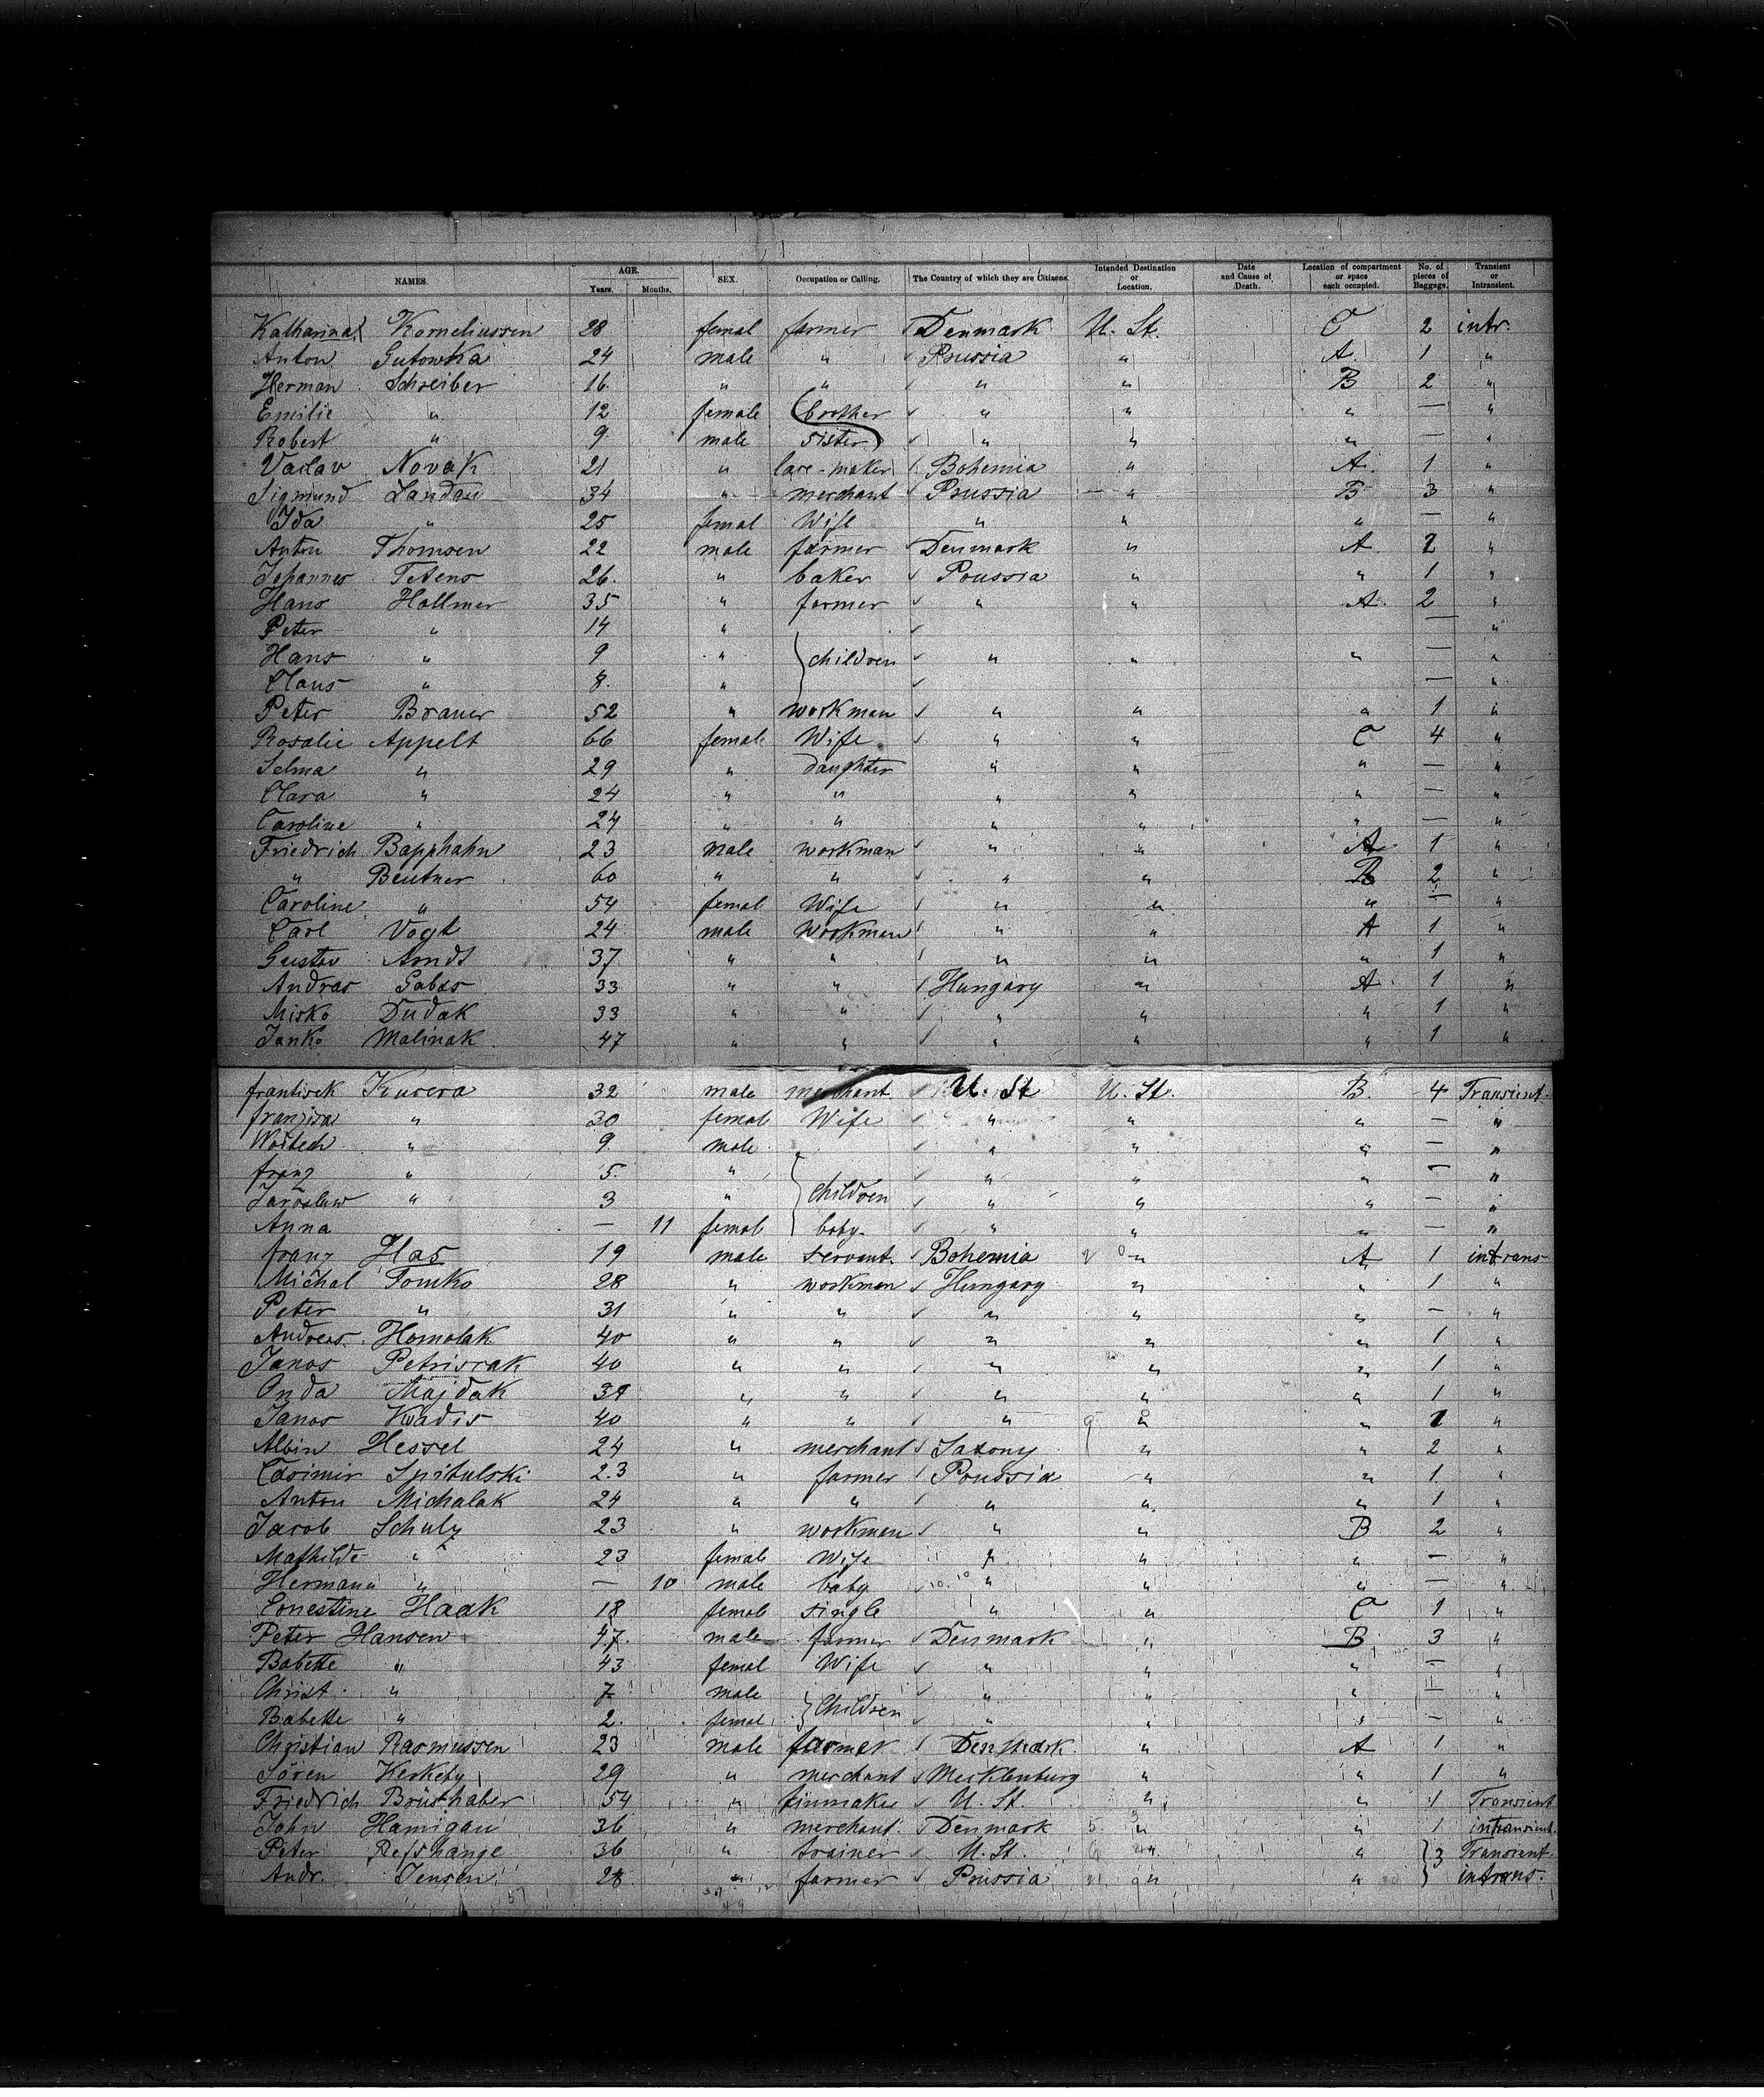 NAMES. AGE. Years. Months. SEX. Occupation or Calling. The Country of which they are Citizens. Intended Destination or Location. Date and Cause of Death. Location of compartment or space each occupied. No. of pieces of Baggage. Transient or Intransient.
Katharina Korneliussen 28 femal farmer Denmark U. St. C 2 intr.
Anton Gutowka 24 male " Prussia " A. 1 "
Herman Schreiber 16 " " " " B 2 "
Emilie " 12 female brother " " " — "
Robert " 9 male sister " " " — "
Vaclav Novak 21 " lace-maker Bohemia " A. 1 "
Sigmund Landau 34 " merchant Prussia " B 3 "
Ida " 25 femal Wife " " " — "
Anton Thomsen 22 male farmer Denmark " A. 2 "
Johannes Tetens 26. " baker Prussia " " 1 "
Hans Hollmer 35 " farmer " " A. 2 "
Peter " 14 " — "
Hans " 9 " children " " " — "
Claus " 8. " — "
Peter Brauer 52 " workman " " " 1 "
Rosalie Appelt 66 female Wife " " C 4 "
Selma " 29 " daughter " " " — "
Clara " 24 " " " " " — "
Caroline " 24 " " " " " — "
Friedrich Bapphahn 23 male workman " " A. 1 "
" Beutner 60 " " " " B 2 "
Caroline " 54 femal Wife " " " — "
Carl Vogt 24 male workman " " A 1 "
Gustav Arndt 37 " " " " " 1 "
Andras Gabas 33 " " Hungary " A. 1 "
Misko Dudak 33 " " " " " 1 "
Janko Malinak 47 " " " " " 1 "
frantisek Kucera 32 male merchant U. St U. St. B. 4 Transient.
franziska " 30 femal Wife " " " — "
Woitech " 9. male " " " — "
franz " 5. " " " " — "
Jaroslaw " 3 " children " " " — "
Anna — 11 femal baby. " " " — "
franz Has 19 male servant. Bohemia " A 1 intrans
Michal Tomko 28 " workman Hungary " " 1 "
Peter " 31 " " " " " — "
Andreas Homolak 40 " " " " " 1 "
Janos Petriscak 40 " " " " " 1 "
Onda Majdak 34 " " " " " 1 "
Janos Kwadis 40 " " " " " 1 "
Albin Hessel 24 " merchant Saxony " " 2 "
Casimir Spitulski 23 " farmer Prussia " " 1 "
Anton Michalak 24 " " " " " 1 "
Jacob Schulz 23 " workman " " B 2 "
Mathilde " 23 femal Wife " " " — "
Hermann " — 10 male baby " " " — "
Ernestine Haak 18 femal single " " C 1 "
Peter Hansen 47. male farmer Denmark " B 3 "
Babette " 43 femal Wife " " " — "
Christ. " 7 male " " " — "
Babette " 2. femal children " " " — "
Christian Rasmussen 23 male farmer Denmark " A 1 "
Sören Kerkeby 29 " merchant Mecklenburg " " 1 "
Friedrich Brüsthaber 54 " U. St. " " 1 Transient
John Hannigan 36 " merchant. Denmark " " 1 intransient.
Peter Refshange 36 " trainer U. St. " " 3 Transient
Andr. Jensen 28 " farmer Prussia " " intrans.